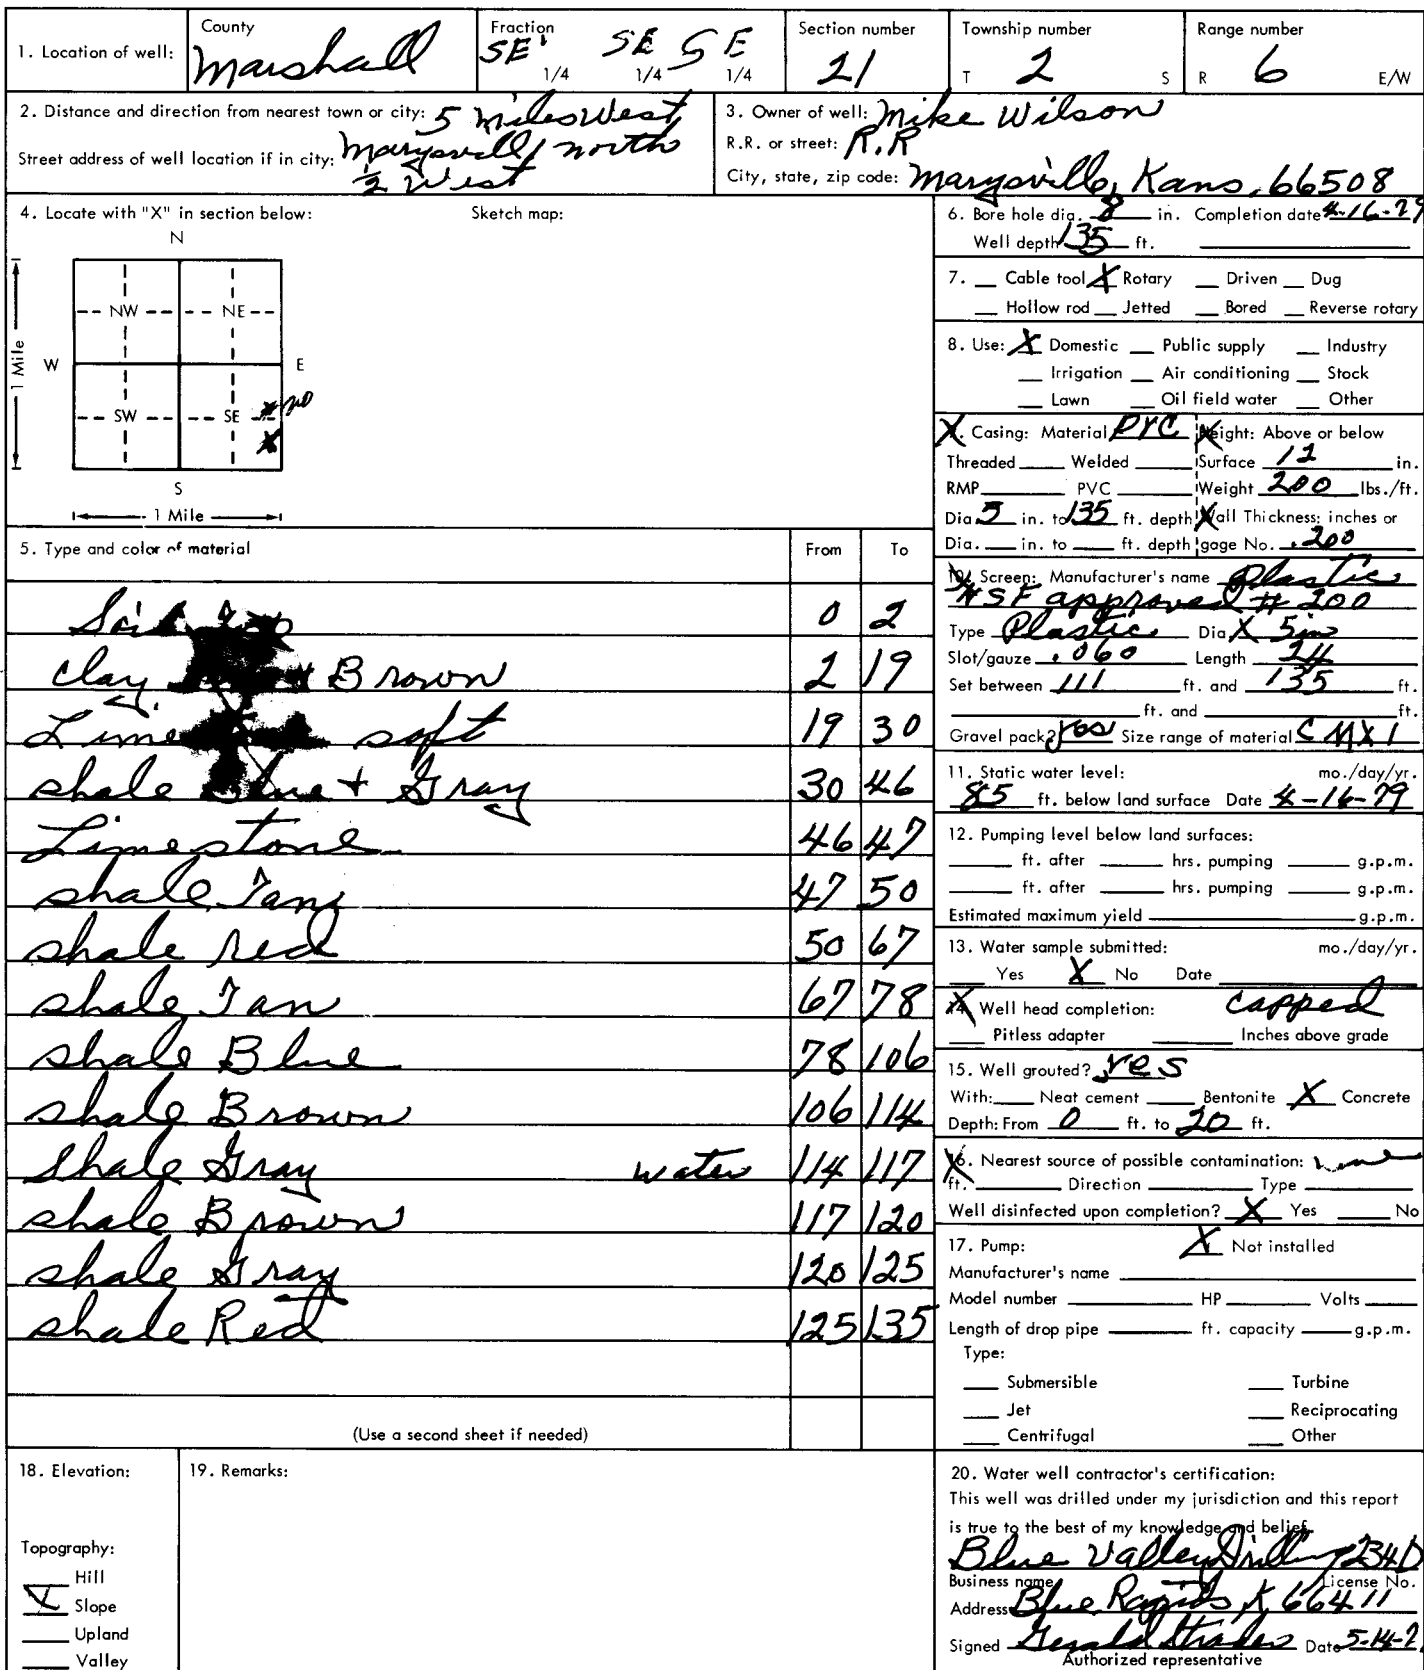 1. Location of well: County Marshall Fraction SE 1/4 SE 1/4 SE 1/4 Section number 21 Township number T 2 S Range number R 6 E/W
2. Distance and direction from nearest town or city: 5 miles West
Street address of well location if in city: Marysvill, 1 north
1/2 West
3. Owner of well: Mike Wilson
R.R. or street: R.R
City, state, zip code: Marysville, Kans, 66508
4. Locate with "X" in section below: Sketch map:
N
NW NE
W E
1 Mile
SW SE X no
X
S
1 Mile
5. Type and color of material From To
Soil Top 0 2
clay Brown 2 19
Lime soft 19 30
shale Blue + Gray 30 46
Limestone 46 47
shale Tan 47 50
shale red 50 67
shale Tan 67 78
shale Blue 78 106
shale Brown 106 114
Shale Gray water 114 117
shale Brown 117 120
shale Gray 120 125
shale Red 125 135
(Use a second sheet if needed)
6. Bore hole dia. 8 in. Completion date 4-16-79
Well depth 135 ft.
7. Cable tool X Rotary Driven Dug
Hollow rod Jetted Bored Reverse rotary
8. Use: X Domestic Public supply Industry
Irrigation Air conditioning Stock
Lawn Oil field water Other
X. Casing: Material PVC Height: Above or below
Threaded Welded Surface 12 in.
RMP PVC Weight 200 lbs./ft.
Dia 5 in. to 135 ft. depth Wall Thickness: inches or
Dia. in. to ft. depth gage No. .200
10. Screen: Manufacturer's name Plastic
NSF approved # 200
Type Plastic Dia X 5in
Slot/gauze .060 Length 24
Set between 111 ft. and 135 ft.
ft. and ft.
Gravel pack? yes Size range of material C MX 1
11. Static water level: mo./day/yr.
85 ft. below land surface Date 4-16-79
12. Pumping level below land surfaces:
ft. after hrs. pumping g.p.m.
ft. after hrs. pumping g.p.m.
Estimated maximum yield g.p.m.
13. Water sample submitted: mo./day/yr.
Yes X No Date
14. Well head completion: capped
Pitless adapter Inches above grade
15. Well grouted? yes
With: Neat cement Bentonite X Concrete
Depth: From 0 ft. to 20 ft.
16. Nearest source of possible contamination: none
ft. Direction Type
Well disinfected upon completion? X Yes No
17. Pump: X Not installed
Manufacturer's name
Model number HP Volts
Length of drop pipe ft. capacity g.p.m.
Type:
Submersible Turbine
Jet Reciprocating
Centrifugal Other
18. Elevation:
Topography:
Hill
X Slope
Upland
Valley
19. Remarks:
20. Water well contractor's certification:
This well was drilled under my jurisdiction and this report
is true to the best of my knowledge and belief.
Blue Valley Drilling 234D
Business name License No.
Address Blue Rapids, K 66411
Signed Gerald Strader Date 5-14-7
Authorized representative